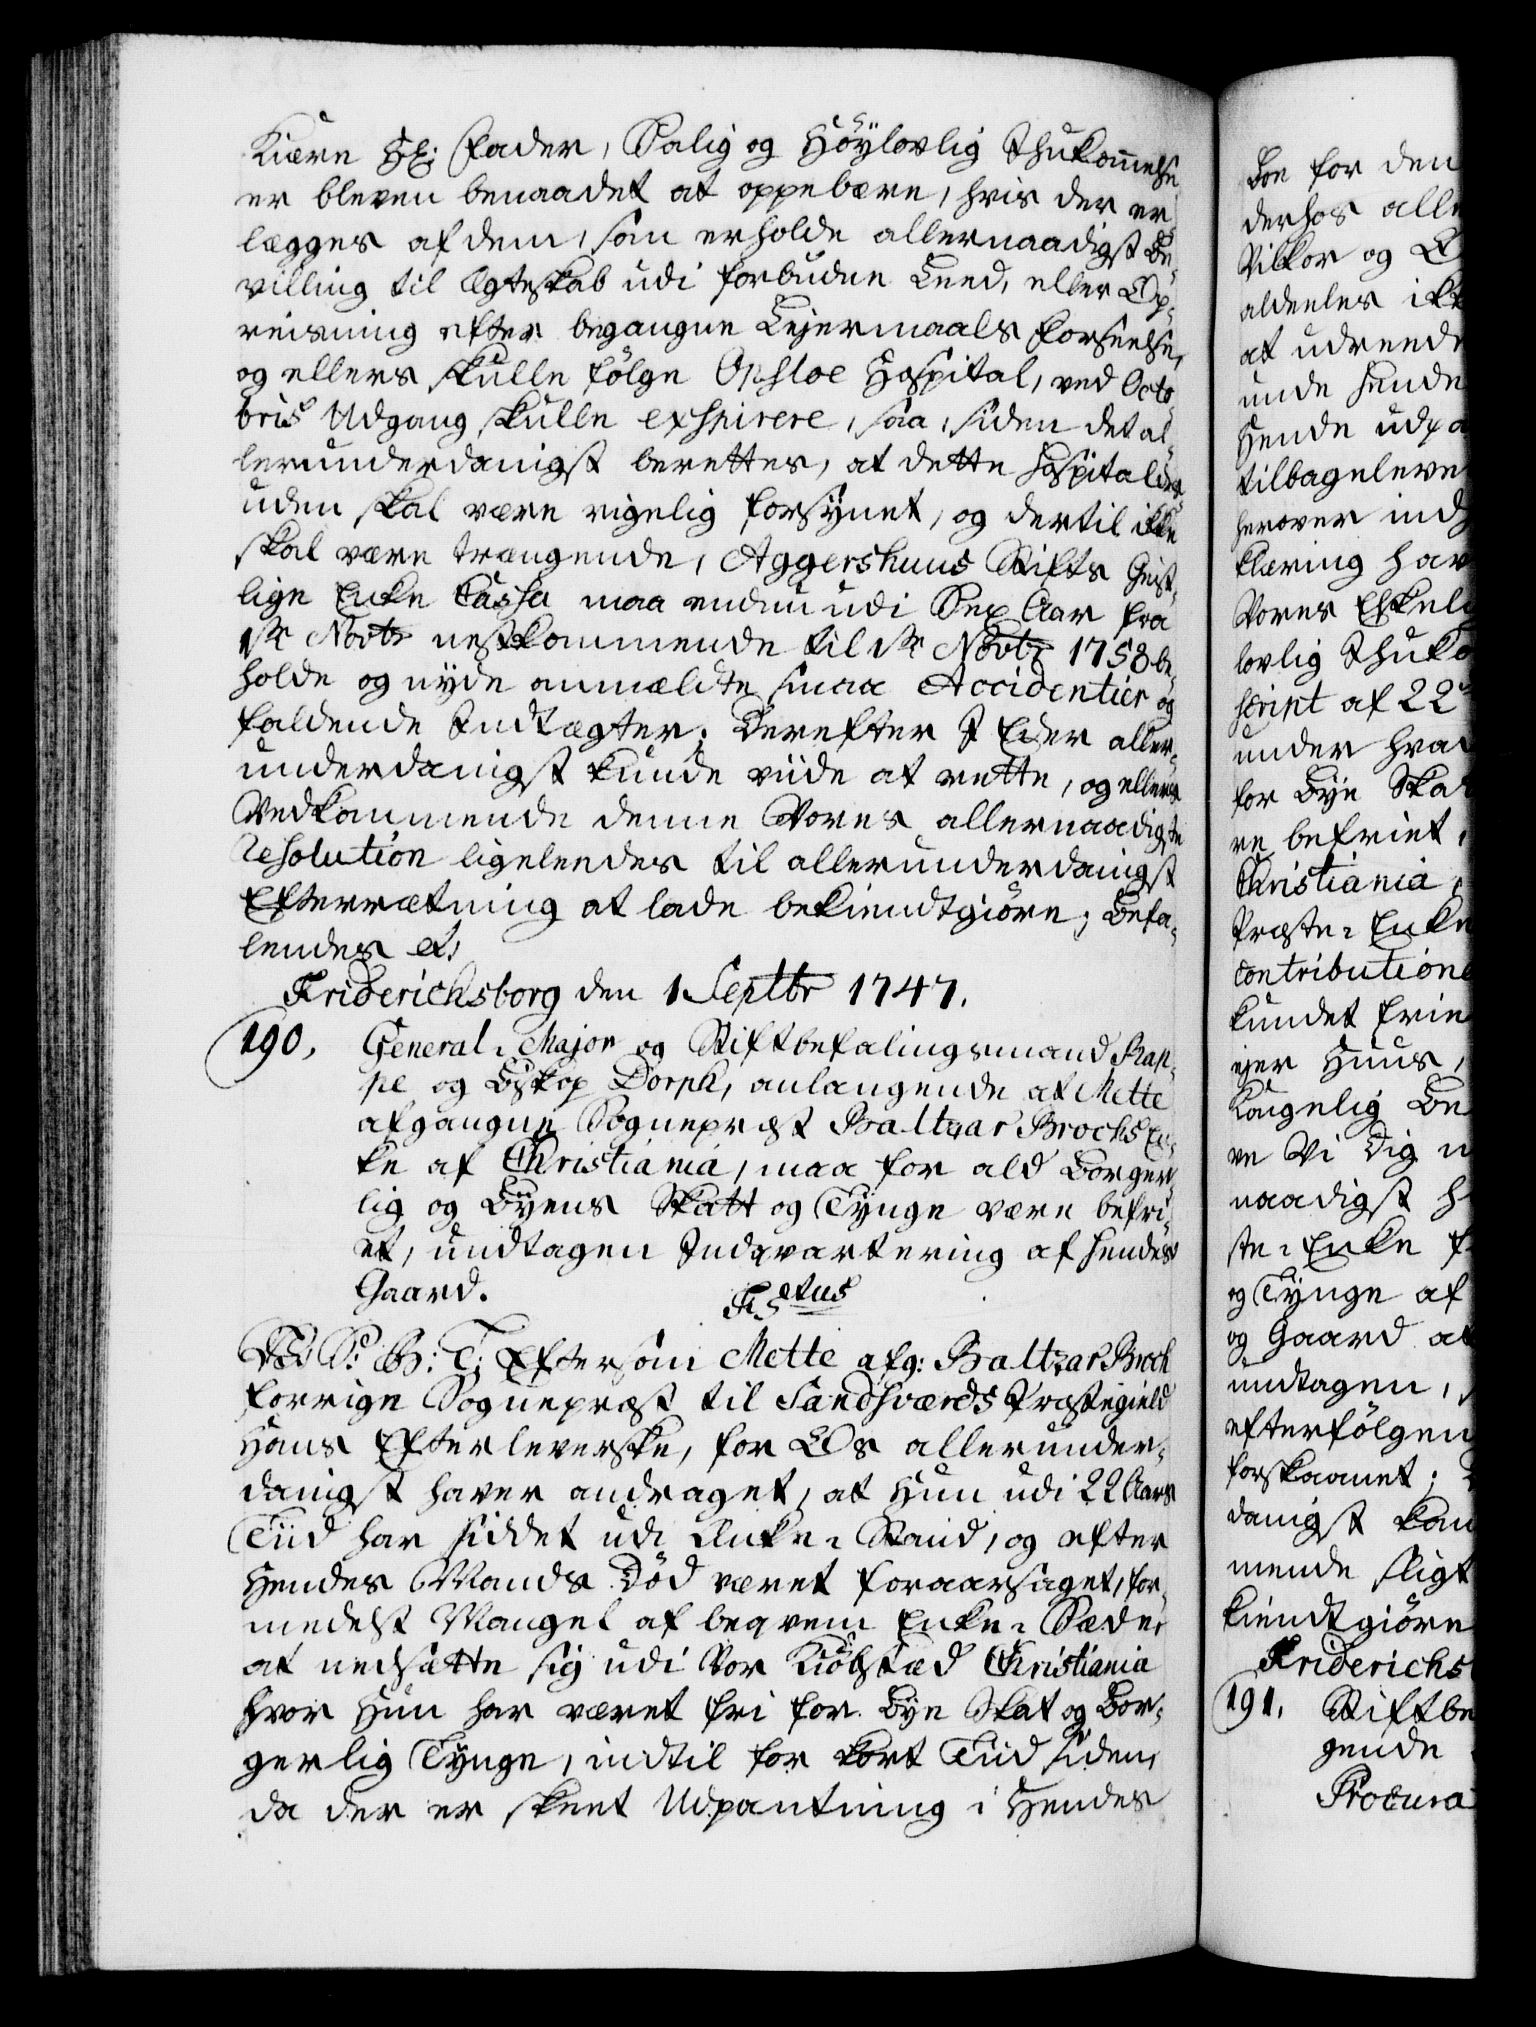 Kiære Hr: Fader, Salig og Höylovlig Ihukommelse
er bleven benaadet at oppebære, hvis der er
lægges af dem, som erholde allernaadigst Be-
villing til Ægteskab udi forbudne Leed, eller Op-
reisning efter begangne Leyermaals Forseelse,
og ellers skulle fölge Opsloe Hospital, ved Octo-
bris Udgang skulle exspirere, saa, siden det al-
lerunderdanigst berettes, at dette Hospital des-
uden skal være rigelig forsynet, og dertil ikke
skal være trængende, Aggershuus Stifts Geist-
lige Enke Cassa maa endnu udi Sex Aar fra
1ste Novbr nestkommende til 1ste Novbr 1753 be-
holde og nyde anmældte smaa Accidentier og
faldende Indtægter. Derefter I Eder aller-
underdanigst kunde viide at rette, og ellers
Vedkommende denne Vores allernaadigste
Resolution ligeleedes til allerunderdanigst
Efterrætning at lade bekiendtgiöre; Befa-
lendes et:
Friderichsborg den 1 Septbr 1747.
190, General-Major og Stiftbefalingsmand Rap-
pe og Biskop Dorph, anlangende at Mette
afgangne Sognepræst Baltzar Brochs En-
ke af Christiania, maa for ald Borger-
lig og Byens Skatt og Tynge være befri-
et, undtagen Indqvartering af hendes
Gaard.
F5 tus
V: S: G: T: Eftersom Mette afg: Baltzar Broch
forrige Sognepræst til Sandsværds Præstegield
Hans Efterleverske, for Os allerunder-
danigst haver andraget, at Hun udi 22 Aars
Tiid har siddet udi Enke-Stand, og efter
Hendes Mands Död været foraarsaget, for-
medelst Mangel af beqvem Enke-Sæde,
at nedsætte sig udi Vor Kiöbstæd Christiania
hvor Hun har været fri for Bye Skat og Bor-
gerlig Tynge, indtil for kort Tiid siden,
da der er skeet Udpantning i Hendes
Boe for den
derhos alle
Vilkor og
aldeeles ikk
at udreede
unde hende
Hende udpa
tilbageleve
herover ind
klæring hav
Vores Elskeli
lovlig Ihuko
script af 22
under hvad
for Bye Skat
re befriet,
Christiania
Præste-Enke
Contribution
kundet frie
ejer Huus,
Kongelig Be
re Vi Dig
naadigst
ste-Enke
og Tynge af
og Gaard at
undtagen,
efterfölgen
forskaanet;
danigst kan
mende sligt
kiendtgiöre
Friderichs
191. Stiftbe
gende
Procura